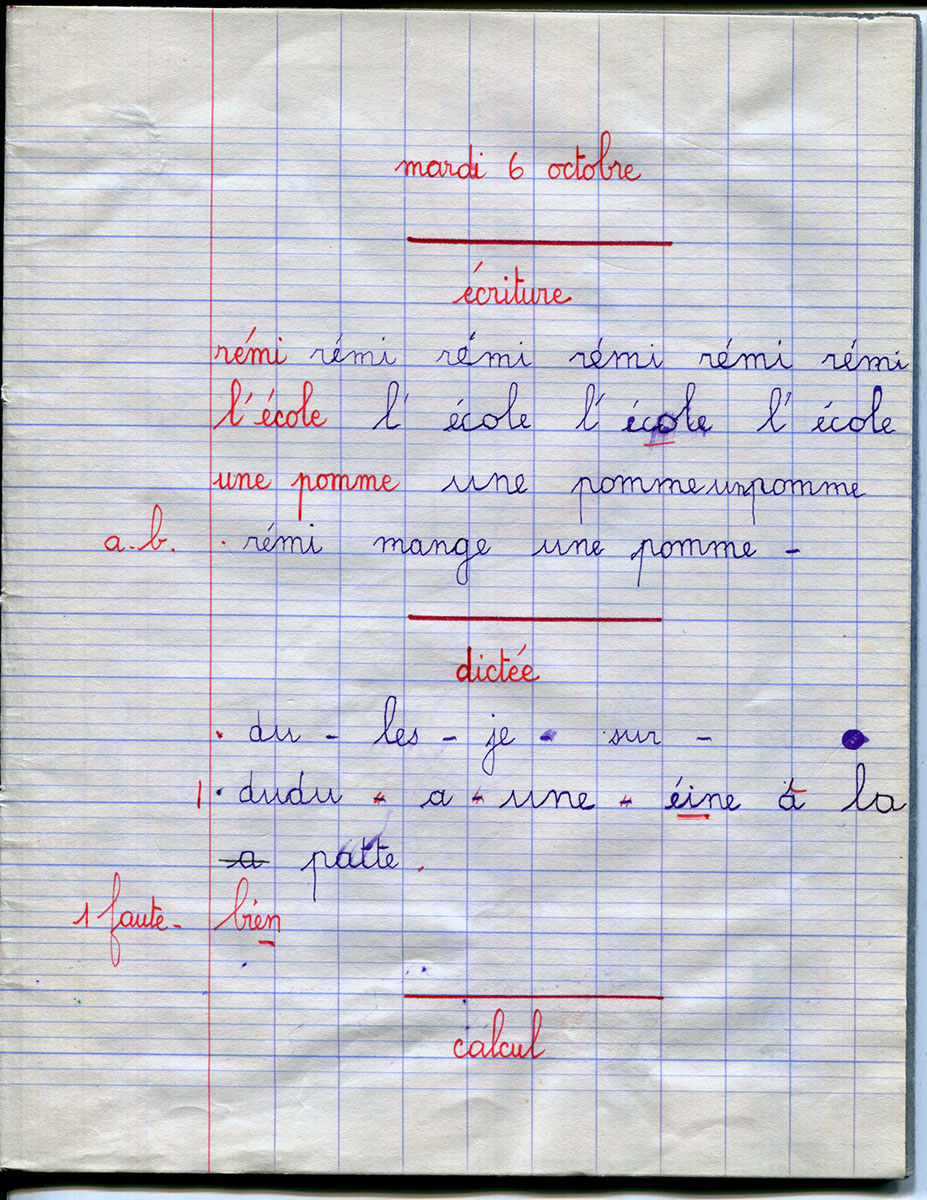 mardi 6 octobre
écriture
rémi rémi rémi rémi rémi rémi
l'école l'école l'école l'école
une pomme une pomme un pomme
a.b. . rémi mange une pomme -
dictée
. du - les - je - sur -
1 . dudu - a - une - éine à la
a patte.
1 faute - bien
calcul